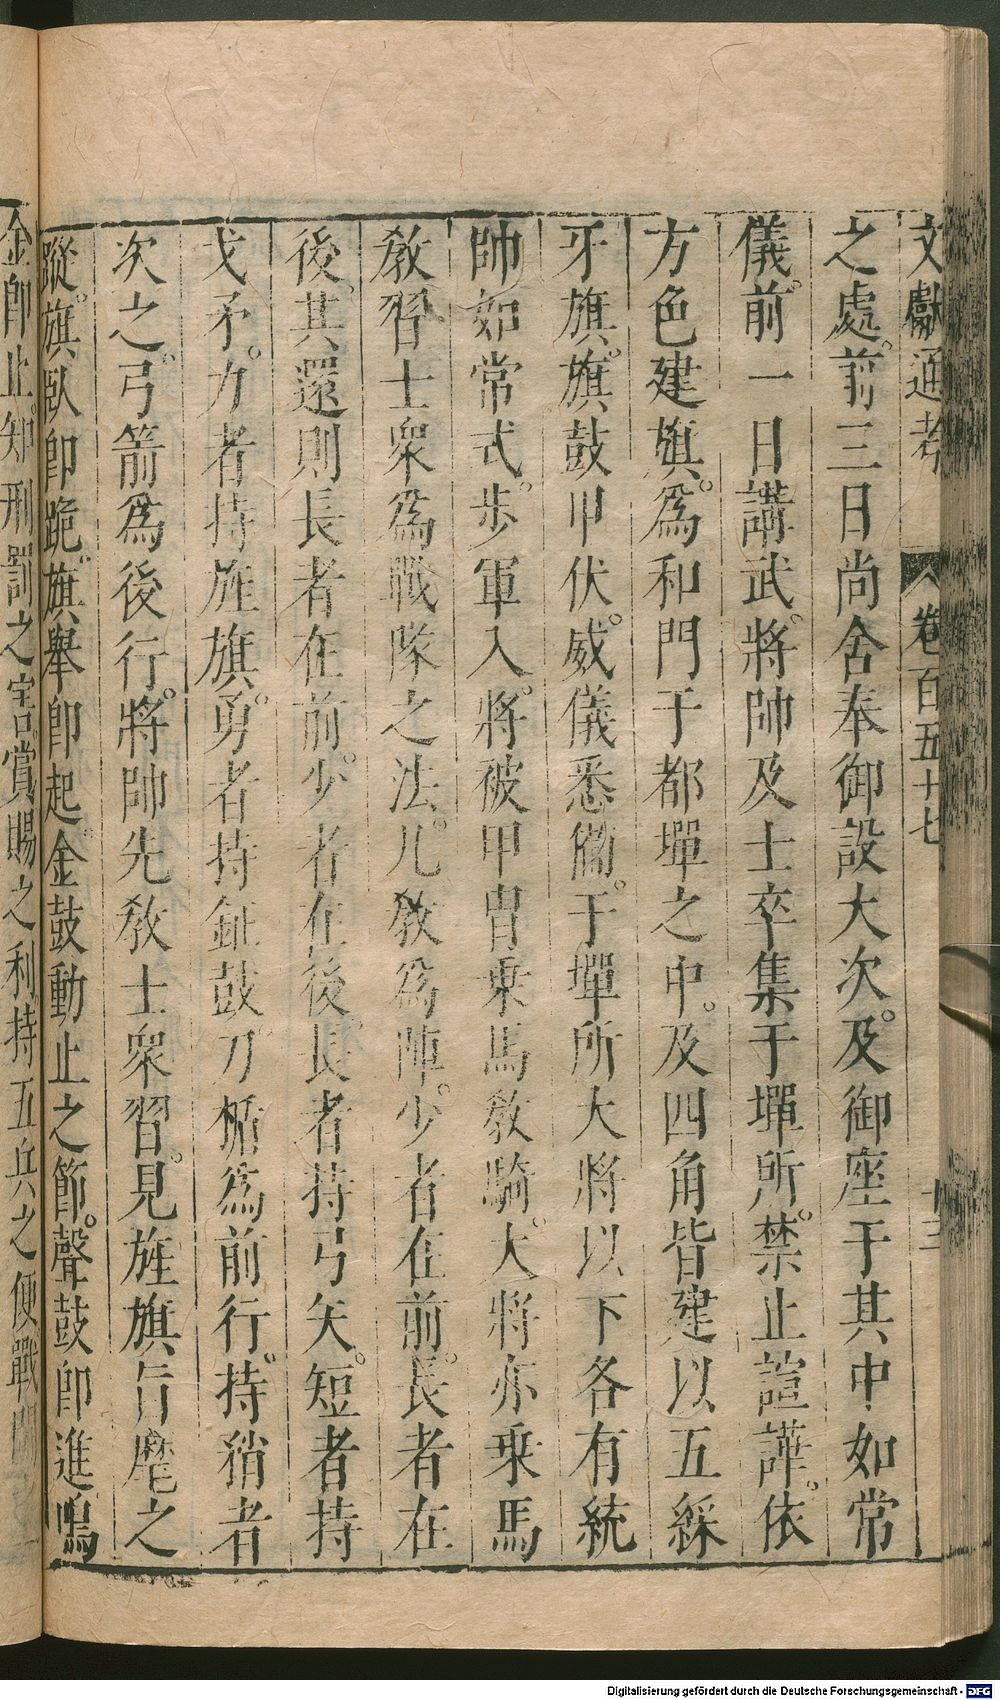 文獻通考 卷百五十七 十三
之處。前三日尚舍奉御設大次。及御座于其中如常
儀。前一日講武。將帥及士卒集于墠所。禁止諠譁。依
方色建旗。為和門于都墠之中。及四角皆建以五綵
牙旗。旗鼓甲仗。威儀悉備。于墠所大將以下各有統
帥如常式。步軍入。將被甲冑乗馬敎騎。大將亦乗馬
敎習士衆為戰隊之法。凡敎為陣。少者在前。長者在
後。其還則長者在前。少者在後。長者持弓矢。短者持
戈矛。力者持旌旗。勇者持鉦鼓刀楯為前行。持矟者
次之。弓箭為後行。將帥先敎士衆習。見旌旗指麾之
蹤。旗臥卽跪。旗舉卽起。金鼓動止之節。聲鼓卽進。鳴
金卽止。知刑罰之害。賞賜之利。持五兵之便。戰鬬
Digitalisierung gefördert durch die Deutsche Forschungsgemeinschaft - DFG